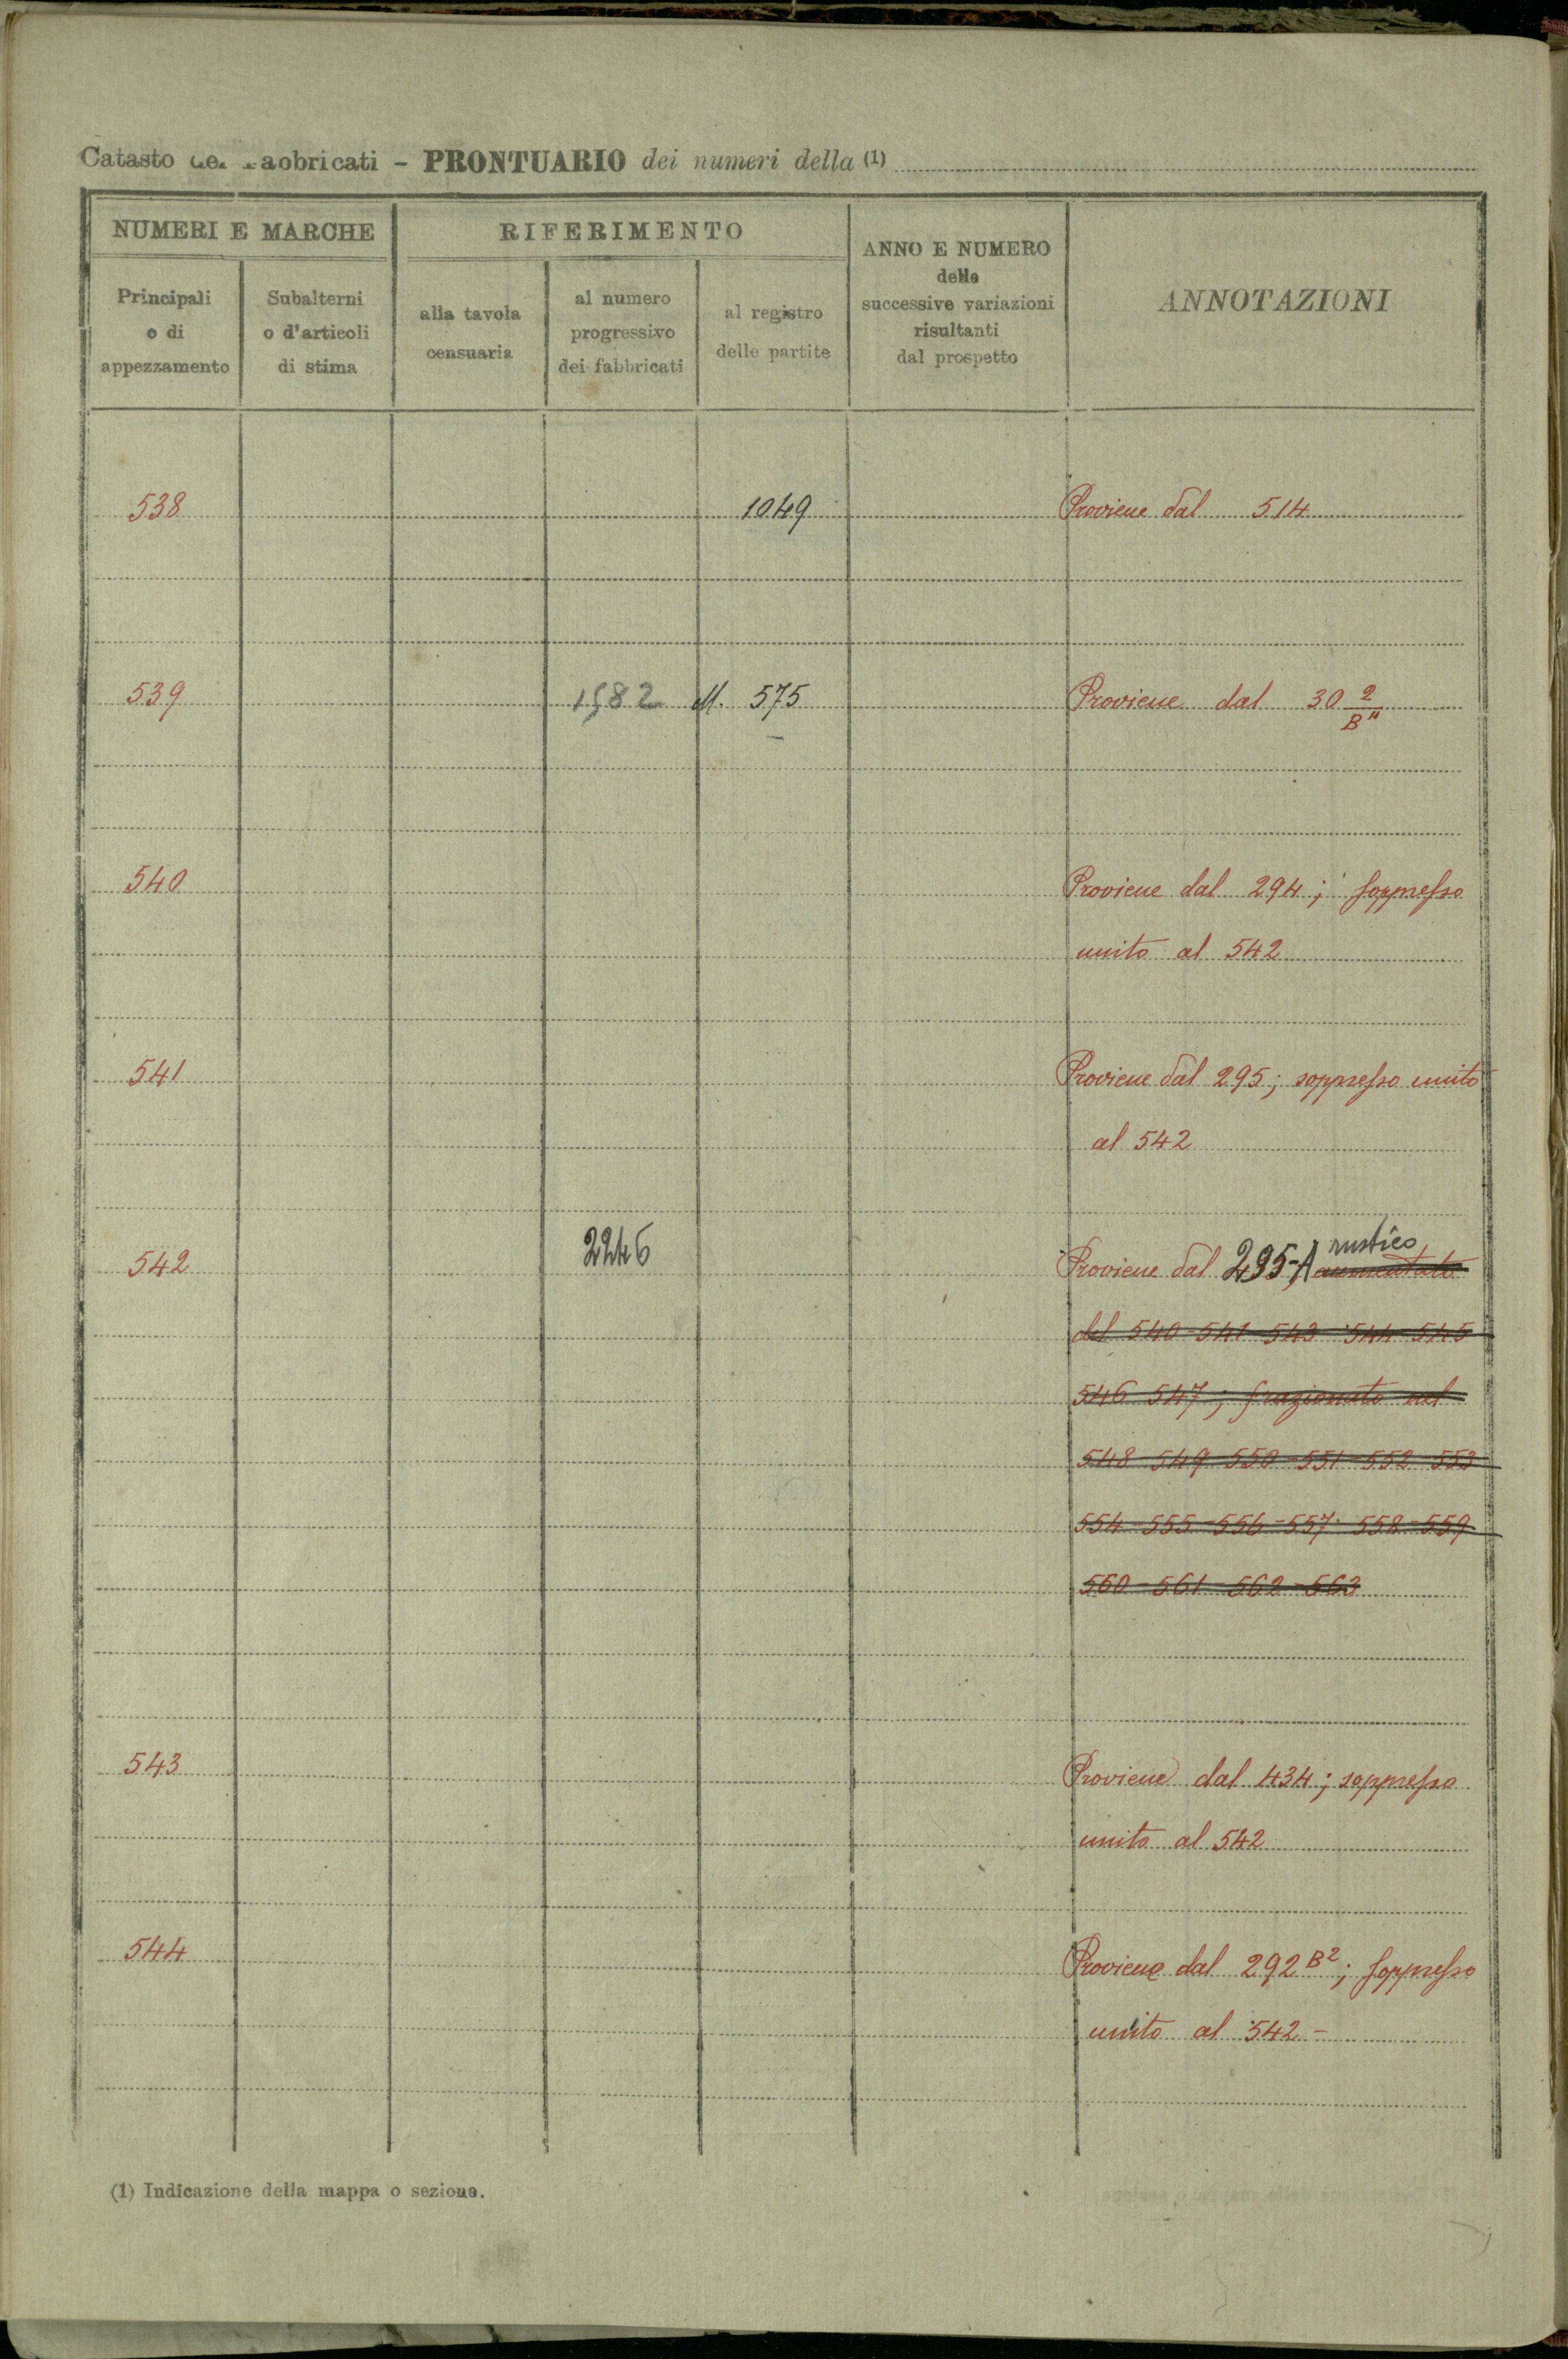 Catasto dei Fabbricati - PRONTUARIO dei numeri della (1)
NUMERI E MARCHE
RIFERIMENTO
ANNO E NUMERO
delle
successive variazioni
risultanti
dal prospetto
ANNOTAZIONI
Principali
o di
appezzamento
Subalterni
o d'articoli
di stima
alla tavola
censuaria
al numero
progressivo
dei fabbricati
al registro
delle partite
538 1049 Proviene dal 514
539 1582 M. 575 Proviene dal 30 2/B"
540 Proviene dal 294; soppresso
unito al 542
541 Proviene dal 295; soppresso unito
al 542
542 2246 Proviene dal 295-A rustico aumentato
del 540-541-543-544-545
546-547; frazionato nel
548-549-550-551-552-553
554-555-556-557-558-559
560-561-562-563
543 Proviene dal 434; soppresso
unito al 542
544 Proviene dal 292 B2; soppresso
unito al 542 -
(1) Indicazione della mappa o sezione.